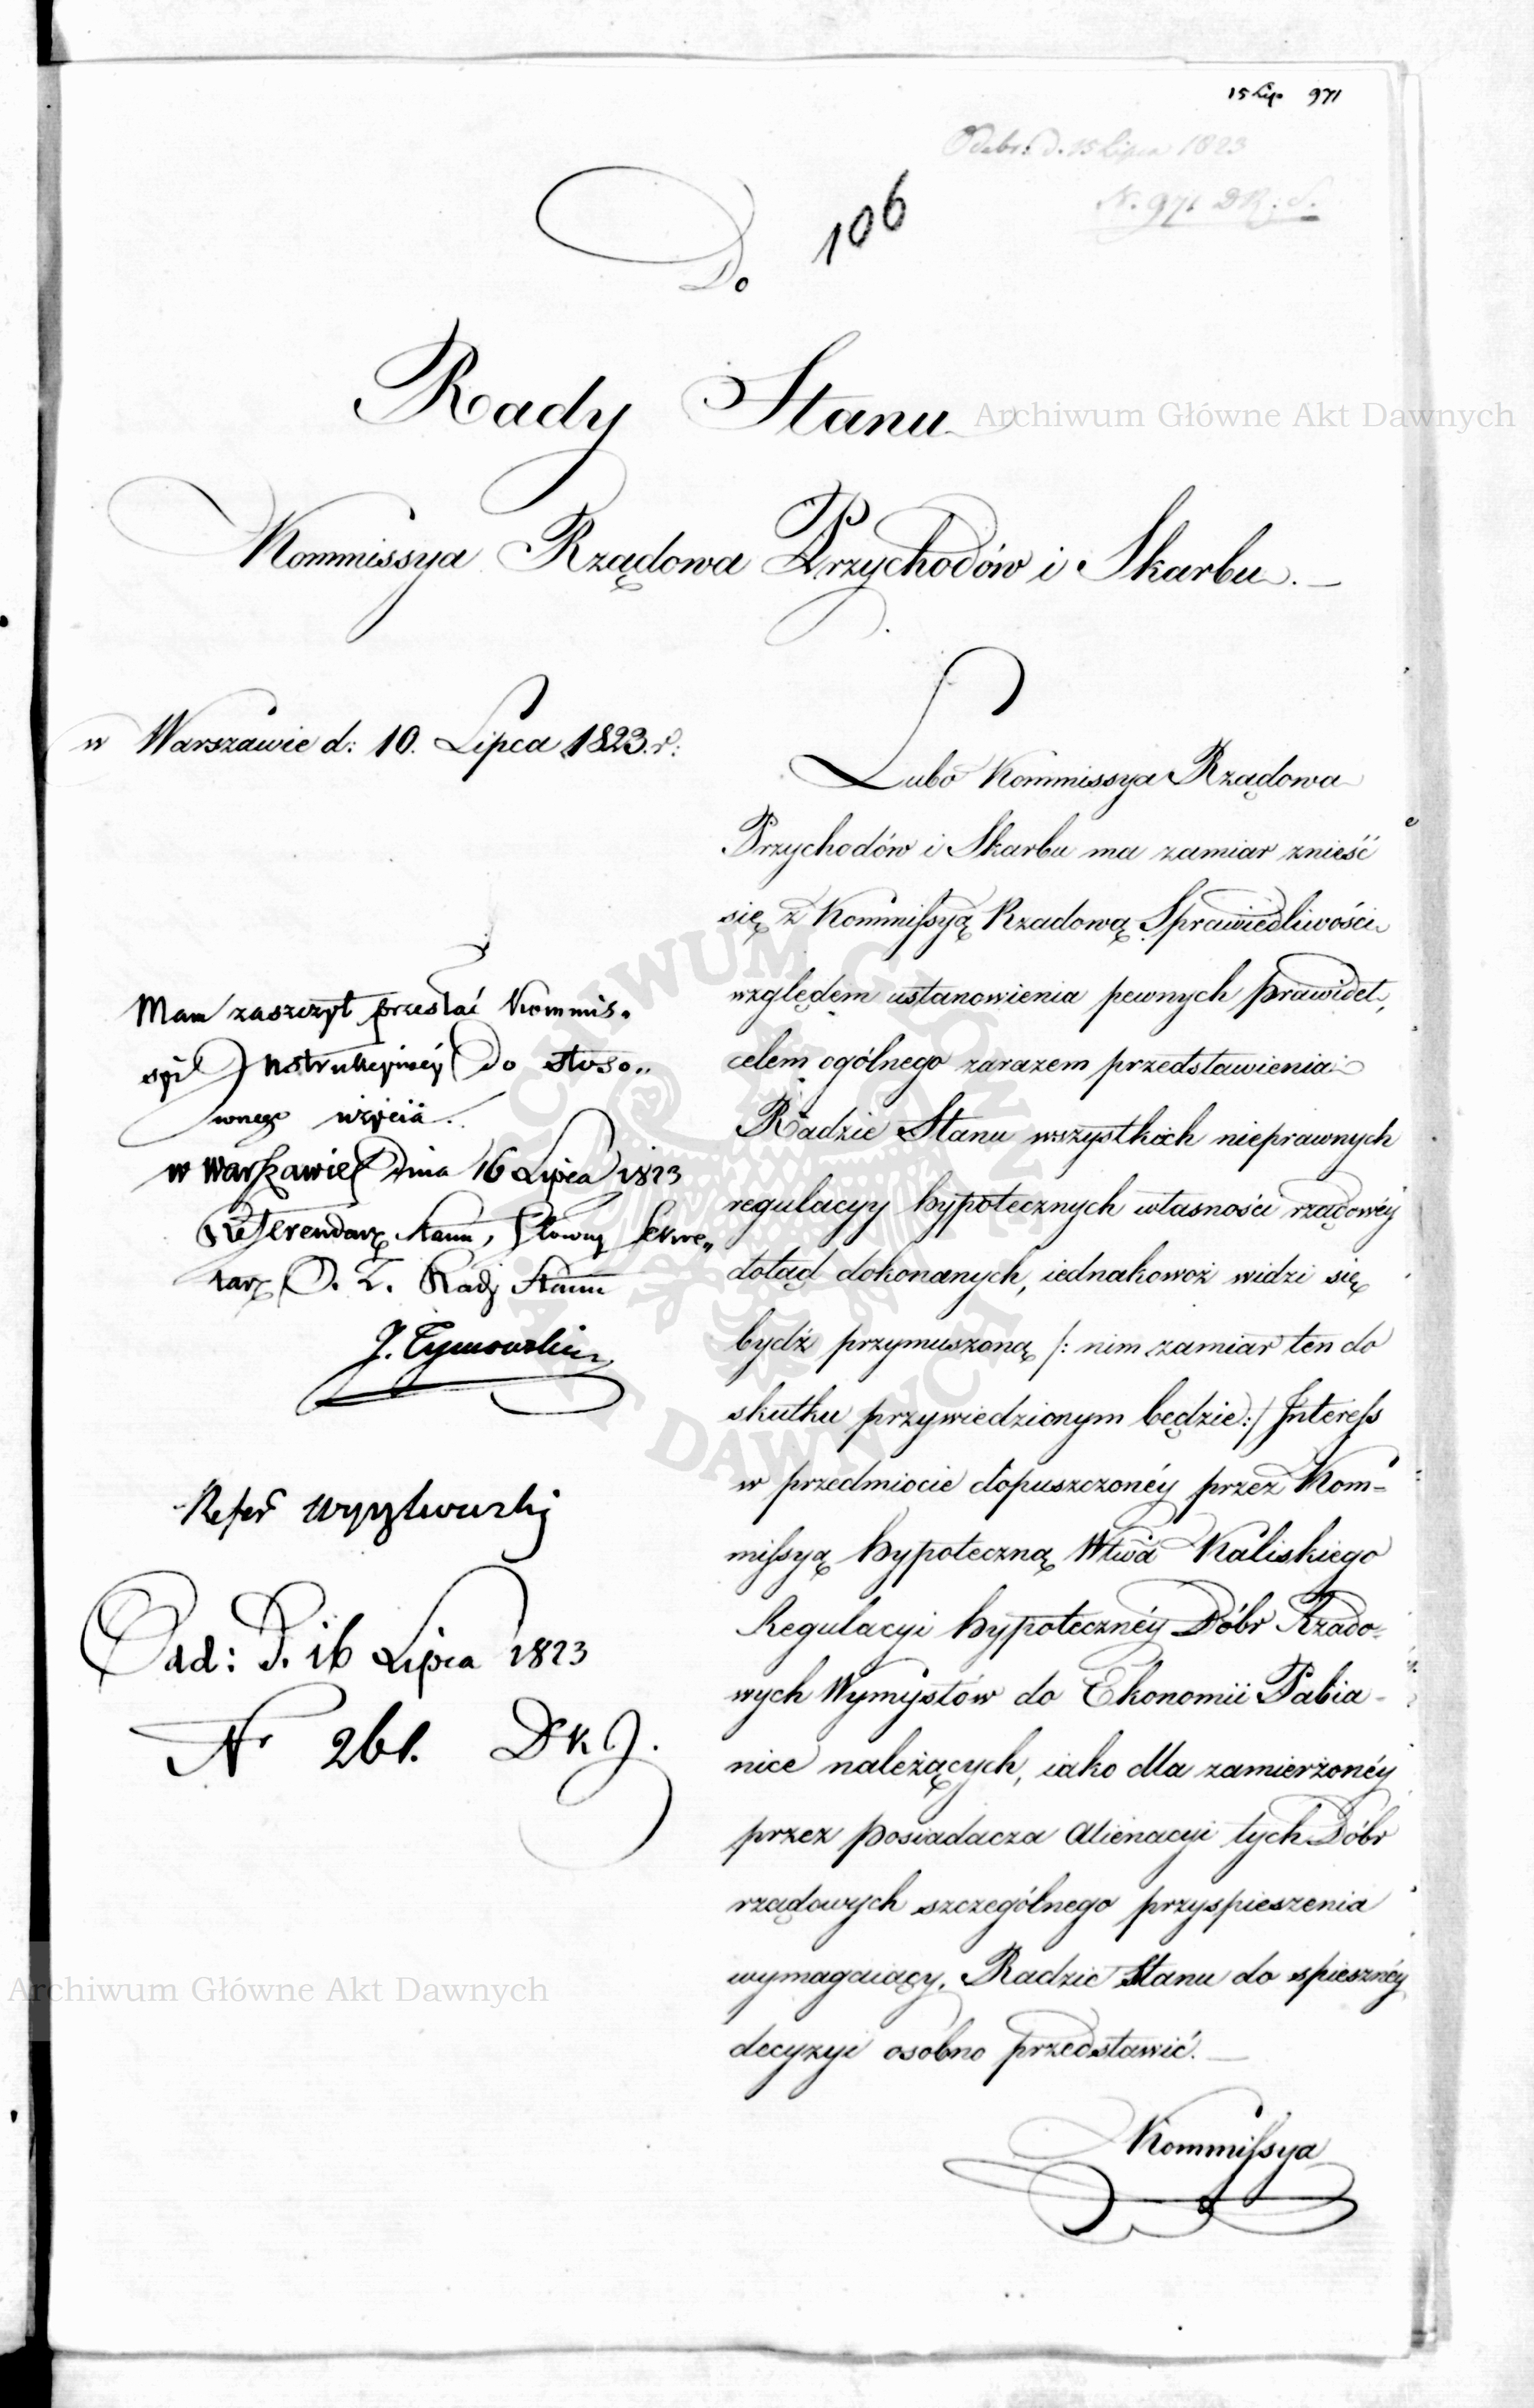 15 Lip. 971
Odebr: d. 15 Lipca 1823
N. 971 DR. S.
106
Do
Rady Stanu
Archiwum Główne Akt Dawnych
Kommissya Rządowa Przychodów i Skarbu. _
w Warszawie d: 10. Lipca 1823. r:
Lubo Kommissya Rządowa
Przychodów i Skarbu ma zamiar znieść
się z Kommissyą Rządową Sprawiedliwości
względem ustanowienia pewnych prawideł,
celem ogólnego zarazem przedstawienia
Radzie Stanu wszystkich nieprawnych
regulacyy hypotecznych własności rządowéy
dotąd dokonanych, iednakowoż widzi się
bydź przymuszoną /: nim zamiar ten do
skutku przywiedzionym będzie :/ Interess
w przedmiocie dopuszczonéy przez Kom=
missyą hypoteczną Wtwa Kaliskiego
Regulacyi hypotecznéy Dóbr Rządo=
wych Wymysłów do Ekonomii Pabia=
nice należących, iako dla zamierzonéy
przez posiadacza Alienacyi tych Dóbr
rządowych szczególnego przyspieszenia
wymagaiący, Radzie Stanu do spiesznéy
decyzyi osobno przedstawić. _
Kommissya
Mam zaszczyt przesłać Kommis„
syi Instrukcyinéy do stoso„
wnego użycia.
w Warszawie Dnia 16 Lipca 1823
Referendarz Stanu, Główny Sekre„
tarz D. T. Rady Stanu
J. Tymowski
Refer
Odd: D. 16 Lipca 1823
Nr 261. DKJ.
Archiwum Główne Akt Dawnych
ARCHIWUM GŁÓWNE AKT DAWNYCH